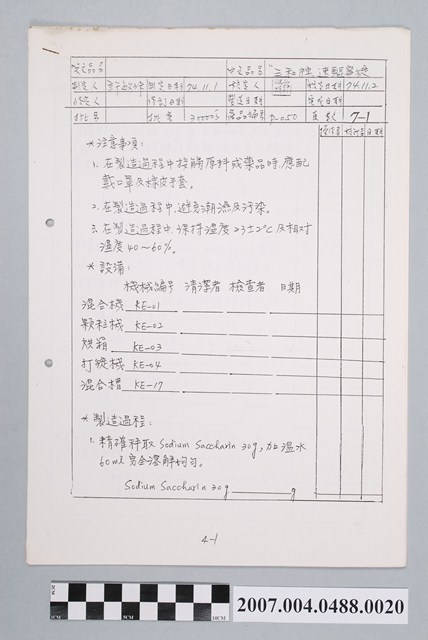 製造日期 74.11.1
74.11.2
批號 批量 30000's 產品編號 P-050 頁數 7-1
操作者 核對者 日期
*注意事項:
1. 在製造過程中接觸原料或藥品時,應配
戴口罩及橡皮手套。
2. 在製造過程中,避免潮濕及污染。
3. 在製造過程中,保持溫度23±2°C及相對
濕度40~60%。
*設備:
機械編號 清潔者 檢查者 日期
混合機 KE-01
顆粒機 KE-02
烘箱 KE-03
打錠機 KE-04
混合槽 KE-17
*製造過程:
1. 精確秤取Sodium Saccharin 30g,加溫水
60ml完全溶解均勻。
Sodium Saccharin 30g g
4-1
2007.004.0488.0020